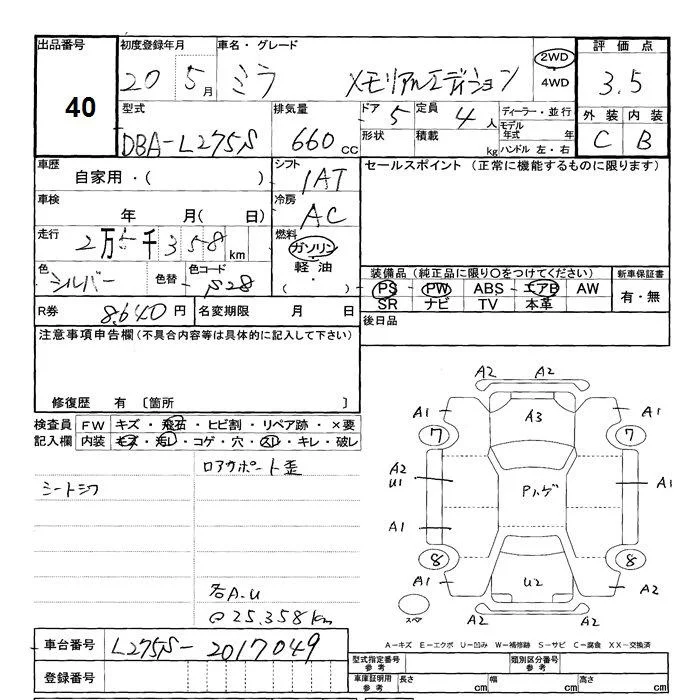 出品番号 初度登録年月 車名・グレード 評価点
40 20 5月 ミラ メモリアルエディション 2WD 4WD 3.5
型式 排気量 ドア 5 定員 4人 ディーラー・並行 外装 内装
DBA-L275S 660cc 形状 積載 kg モデル年式 年 C B
ハンドル 左・右
車歴 自家用・( ) シフト IAT セールスポイント (正常に機能するものに限ります)
車検 年 月( 日) 冷房 AC
走行 2万5千358km 燃料 ガソリン
軽油
( )
色 シルバー 色替 色コード S28 装備品 (純正品に限り○をつけてください) 新車保証書
PS PW ABS エアB AW 有・無
SR ナビ TV 本革
R券 8,640円 名変期限 月 日 後日品
注意事項申告欄(不具合内容等は具体的に記入して下さい)
修復歴 有 〔箇所 〕
検査員 FW キズ・飛石・ヒビ割・リペア跡・×要
記入欄 内装 キズ・汚レ・コゲ・穴・スレ・キレ・破レ
ロアサポート歪
シートシワ
各A.U
@25,358km
A2 A2
A1 A3 A1
7 7
A2
U1 Pハゲ A1
A1
8 8
A1 U2 A2
スペア
A2 A2
A-キズ E-エクボ U-凹み W-補修跡 S-サビ C-腐食 XX-交換済
車台番号 L275S-2017049
登録番号
型式指定番号 参考 類別区分番号 参考
車庫証明用 参考 長さ cm 幅 cm 高さ cm